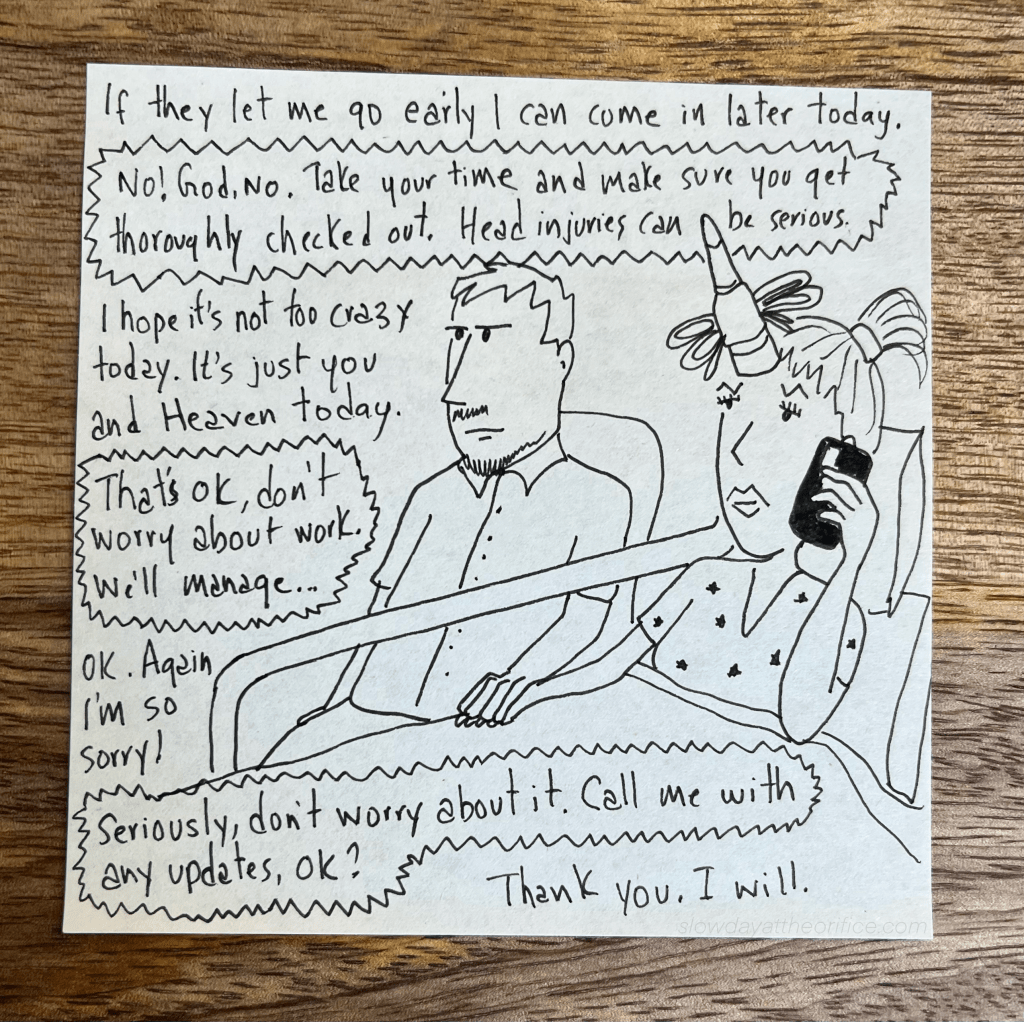 If they let me go early I can come in later today.
No! God, No. Take your time and make sure you get
thoroughly checked out. Head injuries can be serious.
I hope it's not too crazy
today. It's just you
and Heaven today.
That's ok, don't
worry about work.
We'll manage...
OK. Again
I'm so
sorry!
Seriously, don't worry about it. Call me with
any updates, ok?
Thank you. I will.
slowdayattheorifice.com